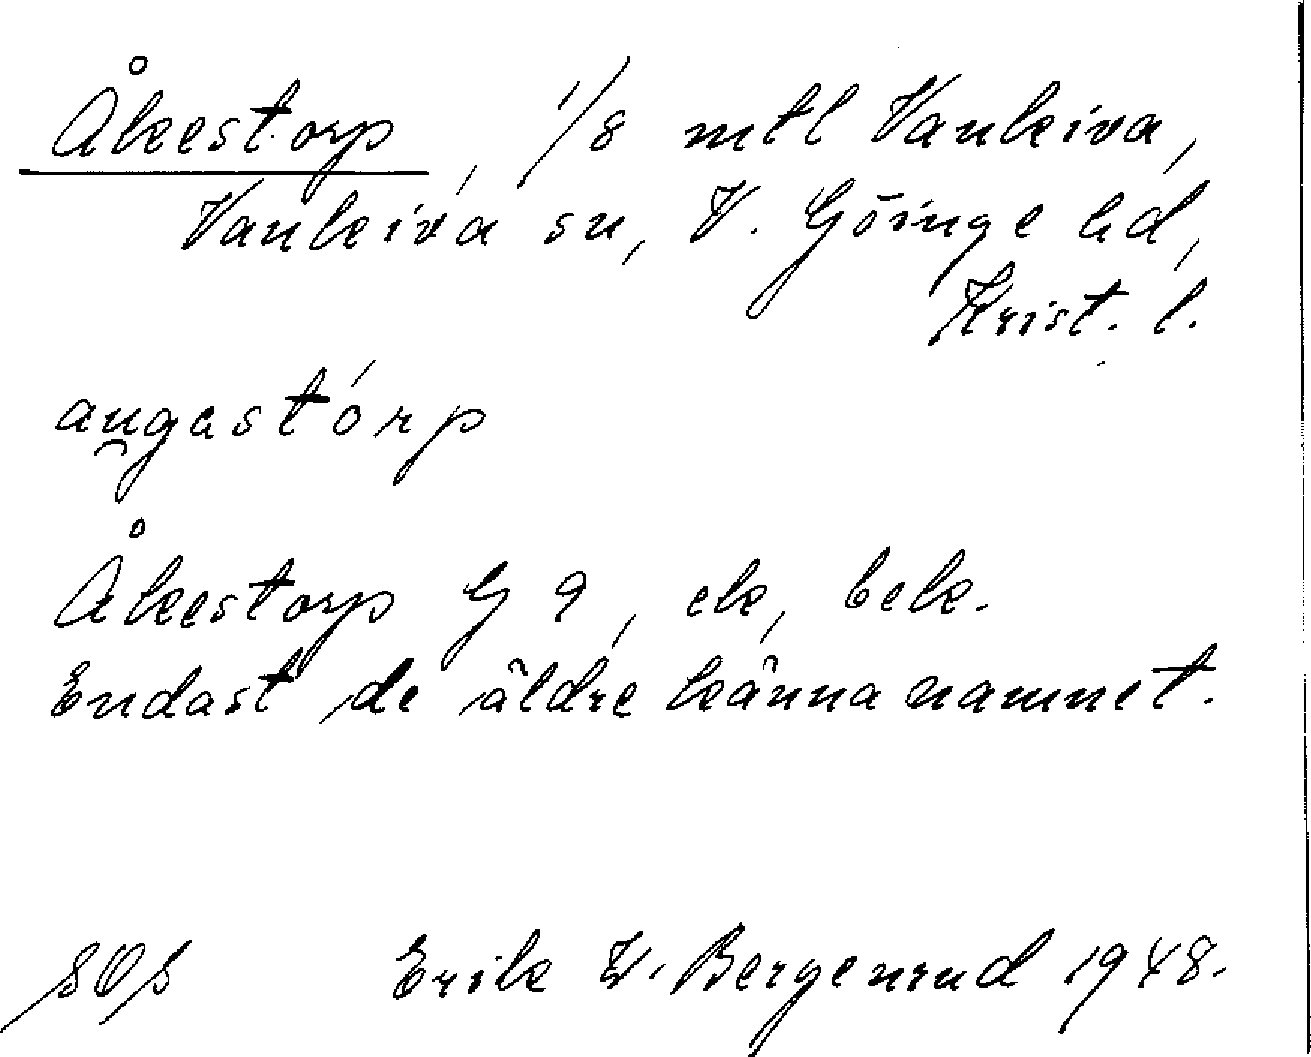 Åkestorp, 1/8 mtl Vankiva,
Vankiva sn, V. Göinge hd,
Krist. l.
au̯gastórp
Åkestorp G 9, ek, bek.
Endast de äldre känna namnet.
Erik W. Bergenrud 1948.